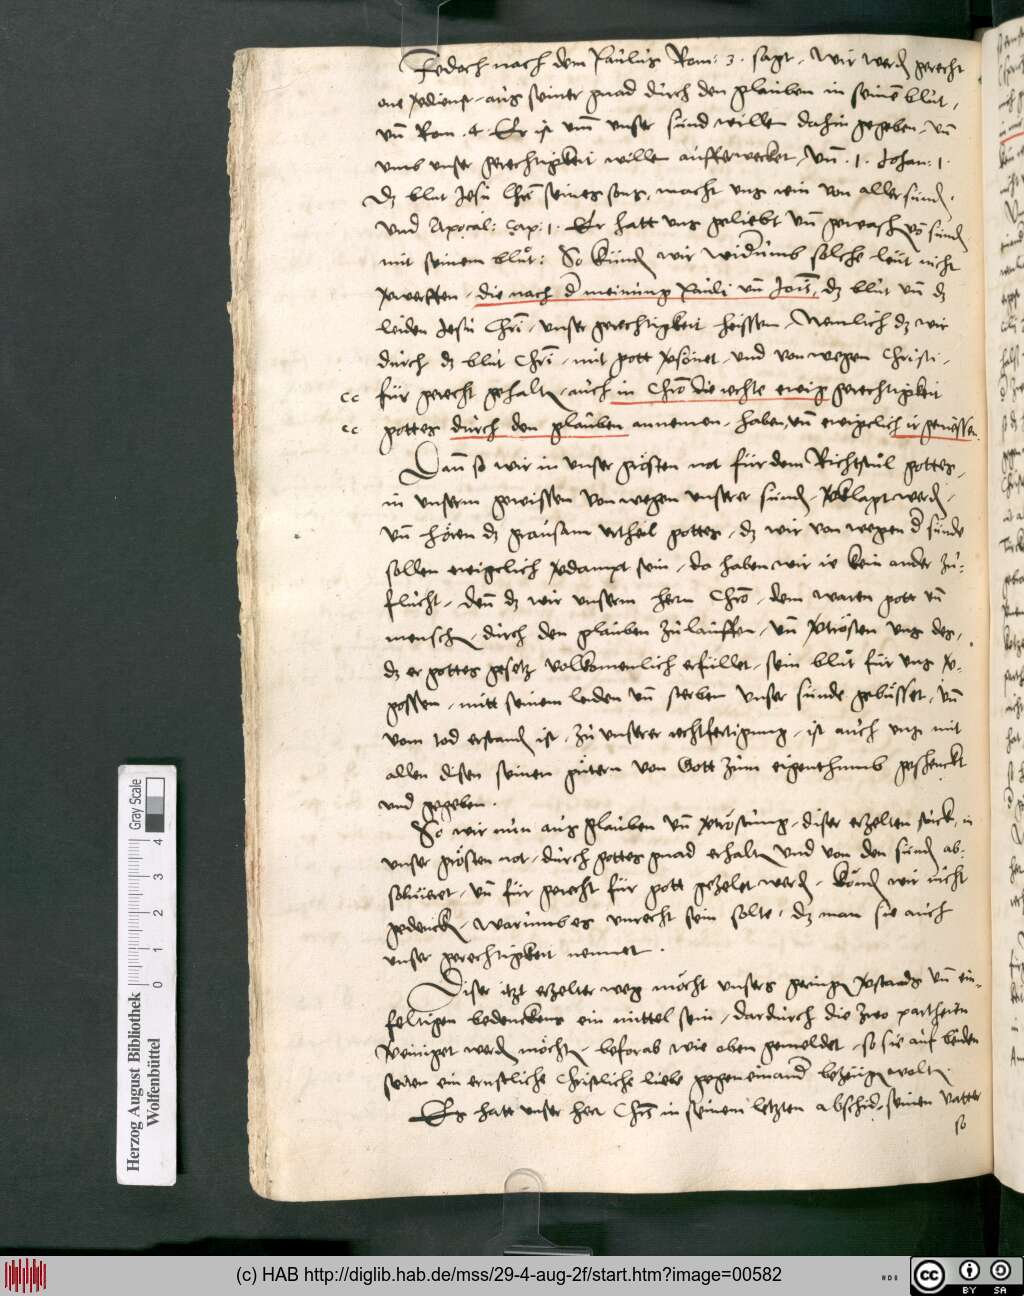 Jedoch nach dem Paulus Rom: 3. sagt, Wir werdn gerecht
one vdienst, aus seiner gnad durch den glauben in seinē blut,
vnn Rom. 4. Er ist vmm vnser sund willen dahin gegeben, vnn
vmb vnser gerechtigkeit willen aufferwecket, Vnn. 1. Johan: 1.
Dz blut Jesu Chri seines sons, macht vns rein von aller sundn.
Vnd Apocal: Cap: 1. Er hatt vns geliebt vnn gewaschn vō sundn
mit seinem blut: So kundn wir widrumb solche leut nicht
vwerffen, die nach d meinung Pauli vnn Joīs, dz blut vnn dz
leiden Jesu Chri, vnser gerechtigkeit heissen, Nemlich dz wir
durch dz blut Chri, mit gott vsönet, vnd von wegen Christi,
cc für gerecht gehaltn, auch in Chro die rechte ewig gerechtigkeit
cc gottes durch den glauben annemen, haben, vnn ewigclich ir geniessen.
Dann so wir in vnser grösten not für dem Richtstul gottes,
in vnserm gewissen von wegen vnserer sundn, vklagt werdn,
vnn hören dz grausam vrtheil gottes, dz wir von wegen d sünde
sollen ewigclich vdampt sein, da haben wir ie kein ander zu-
flucht, denn dz wir vnserm hern Chro, dem waren gott vnn
menschn, durch den glauben zulauffen, vnn vtrösten vns des,
dz er gottes gesetz volkomenlich erfüllet, sein blut für vns v-
gossen, mitt seinem leiden vnn sterben vnser sünde gebüsset, vnn
vom tod erstandn ist, zu vnserer rechtfertigung, ist auch vns mit
allen disen seinen gütern von Gott zum eigenthumb geschenckt
vnd gegeben.
So wir nun aus glauben vnn vtröstung, diser erzelten stuck, in
vnser grösten not, durch gottes gnad erhaltn vnd von den sundn ab-
soluieret, vnn für gerecht für gott gezelet werdn, köndn wir nicht
gedenckn, warumb es vnrecht sein solte, dz man sie auch
vnser gerechtigkeit nennet.
Diser itzt erzelter weg möcht vnsers geringn vstands vnn ein-
feltigen bedenckens ein mittel sein, dardurch die zwo partheien
vereiniget werdn möchtn, beforab wie oben gemeldet, so sie auf beiden
seiten ein ernstliche Christliche liebe gegen einand bezeugn woltn.
Es hatt vnser her Chrs in seinem letzten abschid, seinen vatter
so
Herzog August Bibliothek
Wolfenbüttel
0 1 2 3 4
Gray Scale
(c) HAB http://diglib.hab.de/mss/29-4-aug-2f/start.htm?image=00582
cc BY SA